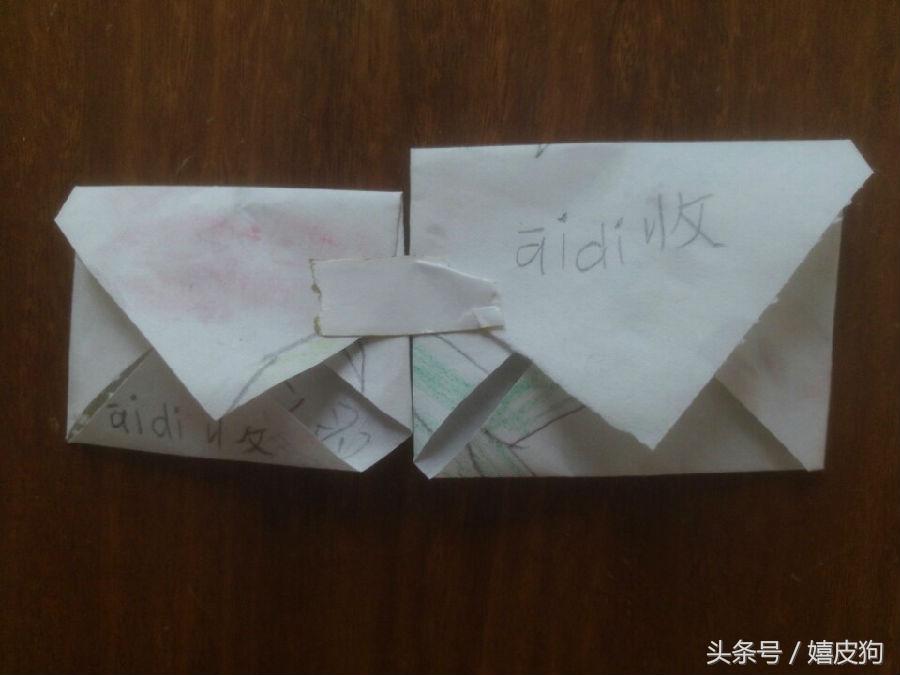 āidi收
āidi收
头条号 / 嬉皮狗